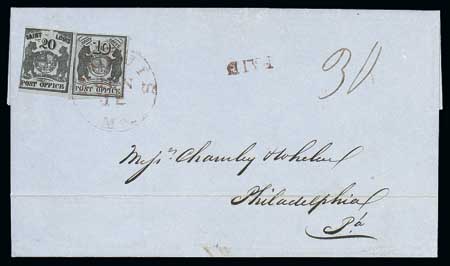 SAINT LOUIS
20
POST OFFICE
10
POST OFFICE
PAID
30
Messrs Chamley & Whelen
Philadelphia
Pa